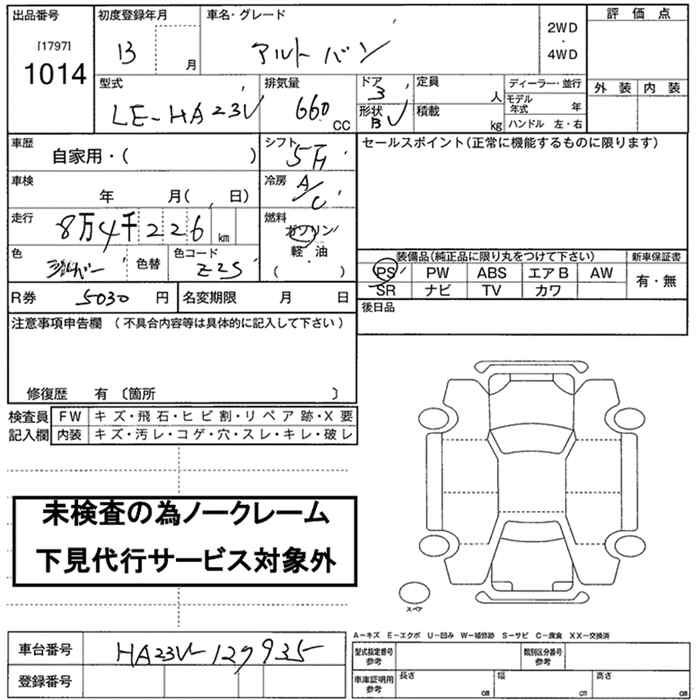 出品番号
[1797]
1014
初度登録年月
13 月
車名・グレード
アルト バン
2WD
・
4WD
評 価 点
外 装 内 装
型式
LE-HA23V
排気量
660 CC
ドア
3
形状
B V
定員
人
積載
kg
ディーラー・並行
モデル年式 年
ハンドル 左・右
車歴
自家用・( )
シフト
5F
セールスポイント(正常に機能するものに限ります)
車検
年 月( 日)
冷房
A/C
走行
8万4千226 km
燃料
ガソリン
軽・油
( )
色
シルバー
色替
色コード
Z2S
装備品(純正品に限り丸をつけて下さい)
新車保証書
PS PW ABS エアB AW
SR ナビ TV カワ
有・無
R券 5030 円
名変期限 月 日
後日品
注意事項申告欄 (不具合内容等は具体的に記入して下さい)
修復歴 有 〔箇所 〕
検査員
記入欄
FW キズ・飛石・ヒビ割・リペア跡・X要
内装 キズ・汚レ・コゲ・穴・スレ・キレ・破レ
未検査の為ノークレーム
下見代行サービス対象外
スペア
A-キズ E-エクボ U-凹み W-補修跡 S-サビ C-腐食 XX-交換済
車台番号 HA23V-129935
登録番号
型式指定番号
参考
類別区分番号
参考
車庫証明用
参考
長さ cm
幅 cm
高さ cm